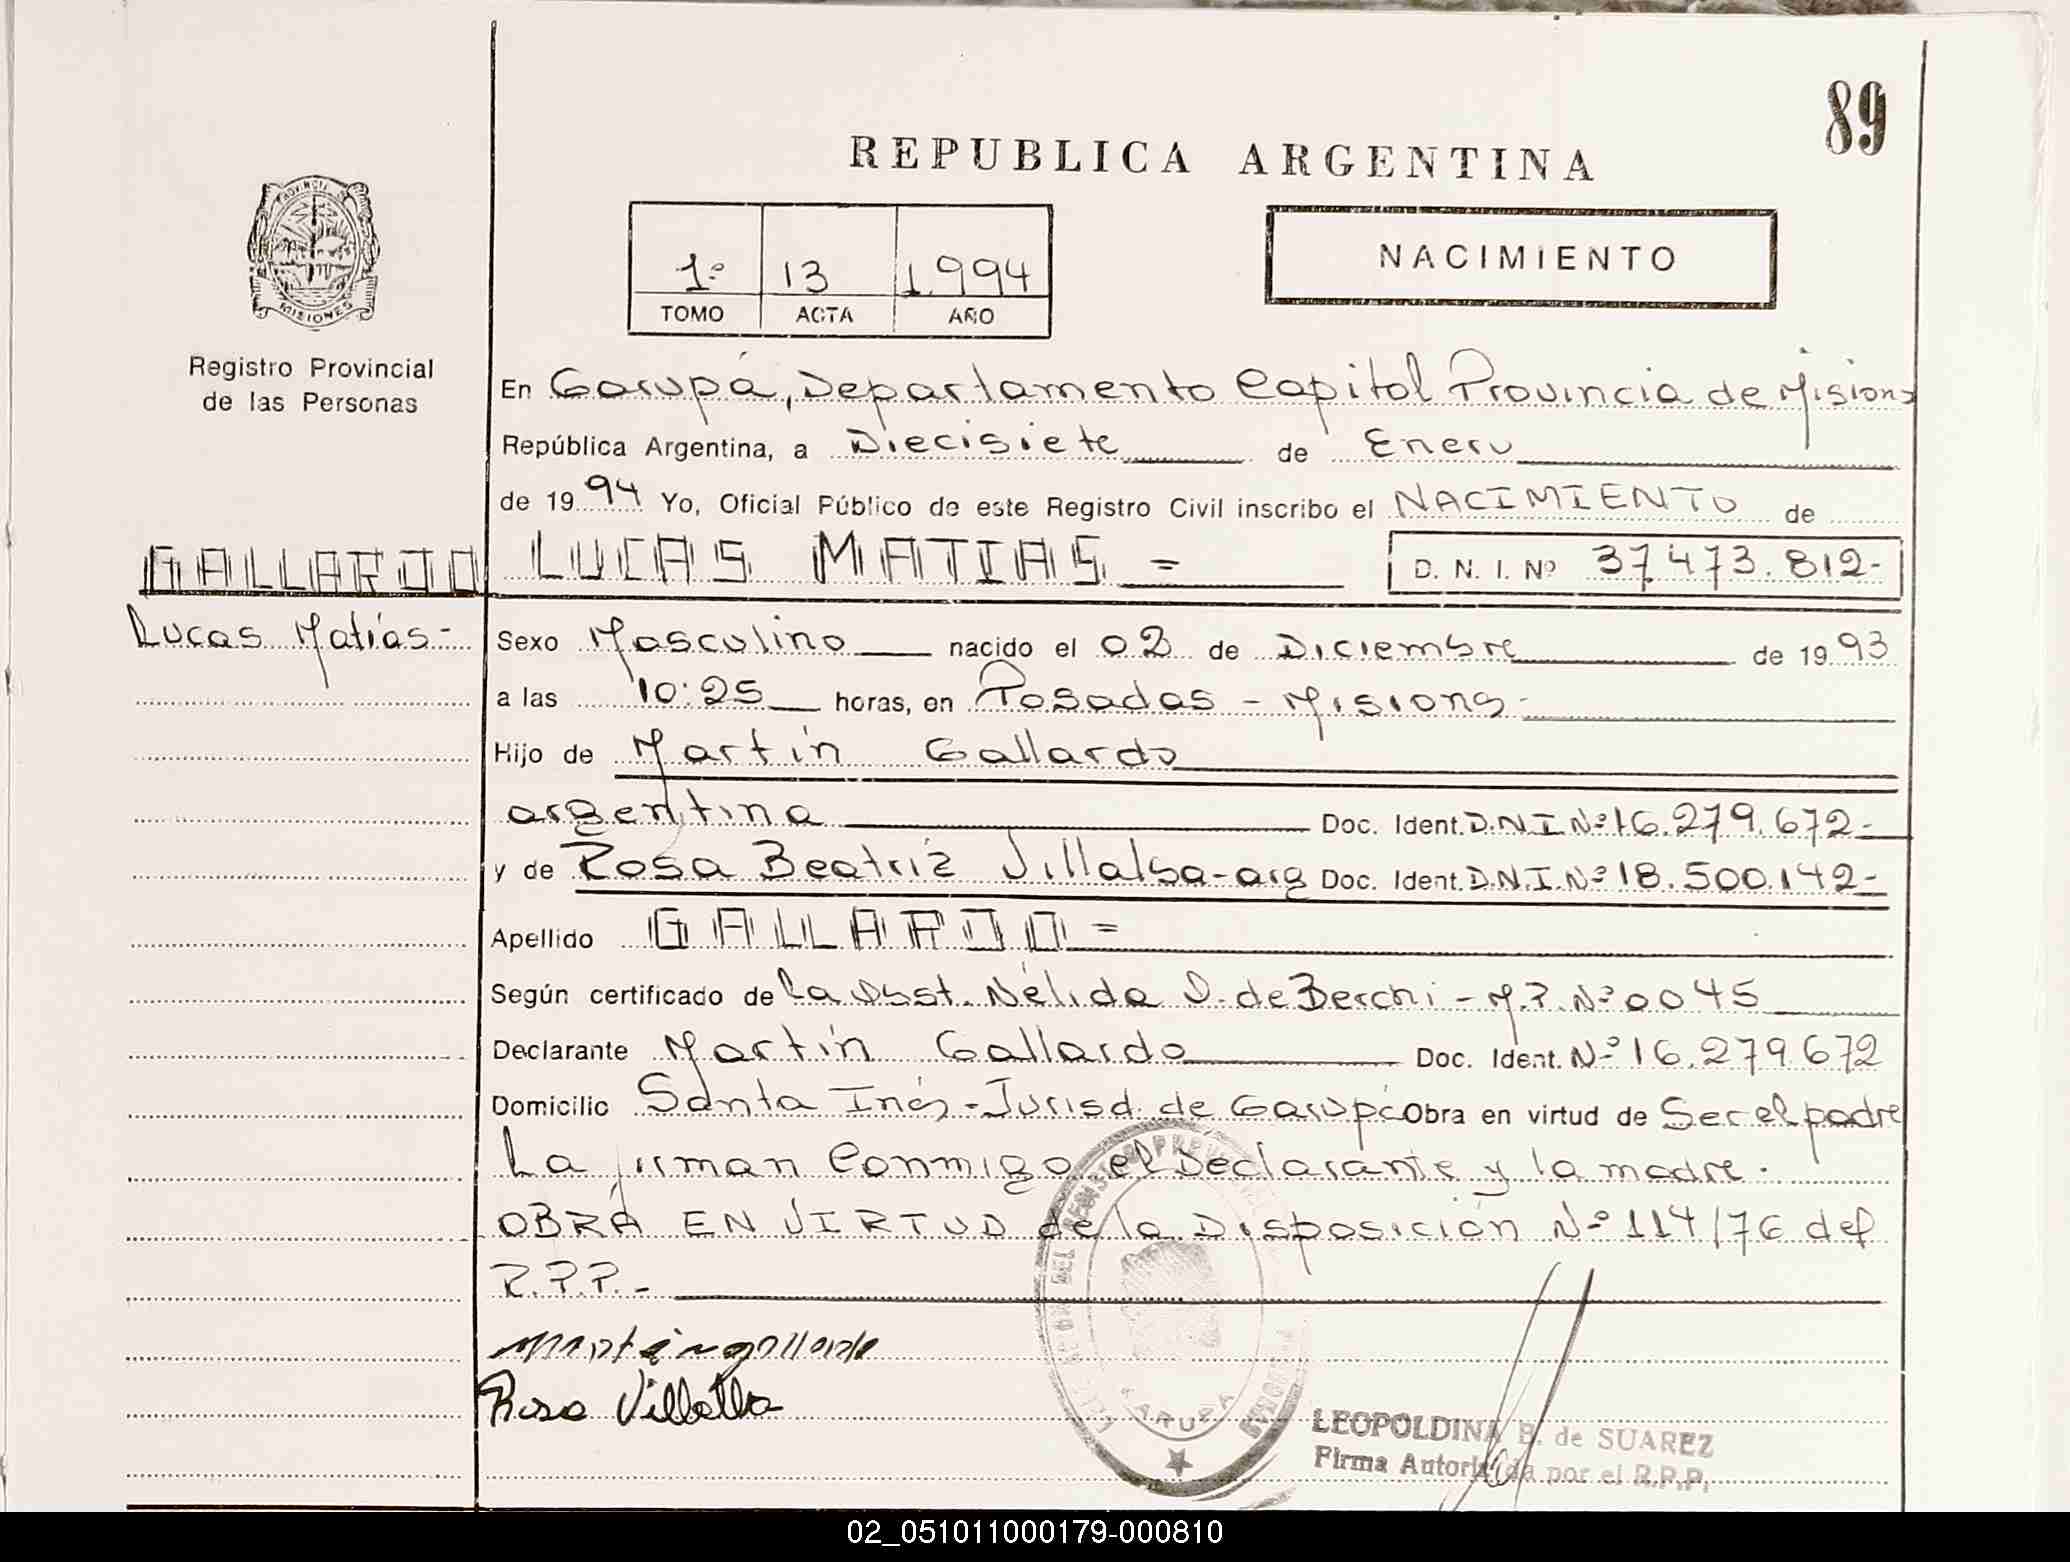 89
REPUBLICA ARGENTINA
PROVINCIA DE
MISIONES
1º 13 1.994
TOMO ACTA AÑO
NACIMIENTO
Registro Provincial
de las Personas
En Garupá, Departamento Capital Provincia de Misiones
República Argentina, a Diecisiete de Enero
de 19 94 Yo, Oficial Público de este Registro Civil inscribo el NACIMIENTO de
GALLARDO LUCAS MATIAS = D. N. I. Nº 37.473.812-
Lucas Matías-
Sexo Masculino nacido el 02 de Diciembre de 19 93
a las 10:25 horas, en Posadas - Misiones-
Hijo de Martín Gallardo
argentina Doc. Ident. D.N.I Nº 16.279.672-
y de Rosa Beatríz Villalba-arg Doc. Ident. D.N.I. Nº 18.500.142-
Apellido GALLARDO =
Según certificado de La Obst. Nélida D. de Berchi - M.P. Nº 0045
Declarante Martín Gallardo Doc. Ident. Nº 16.279.672
Domicilio Santa Inés - Jurisd. de Garupá Obra en virtud de Ser el padre
La firman Conmigo el Declarante y la madre.
OBRA EN VIRTUD de la Disposición Nº 114/76 del
R.P.P.-
Martin gallardo
Rosa Villalba
GARUPA
LEOPOLDINA B. de SUAREZ
Firma Autorizada por el R.P.P.
02_051011000179-000810